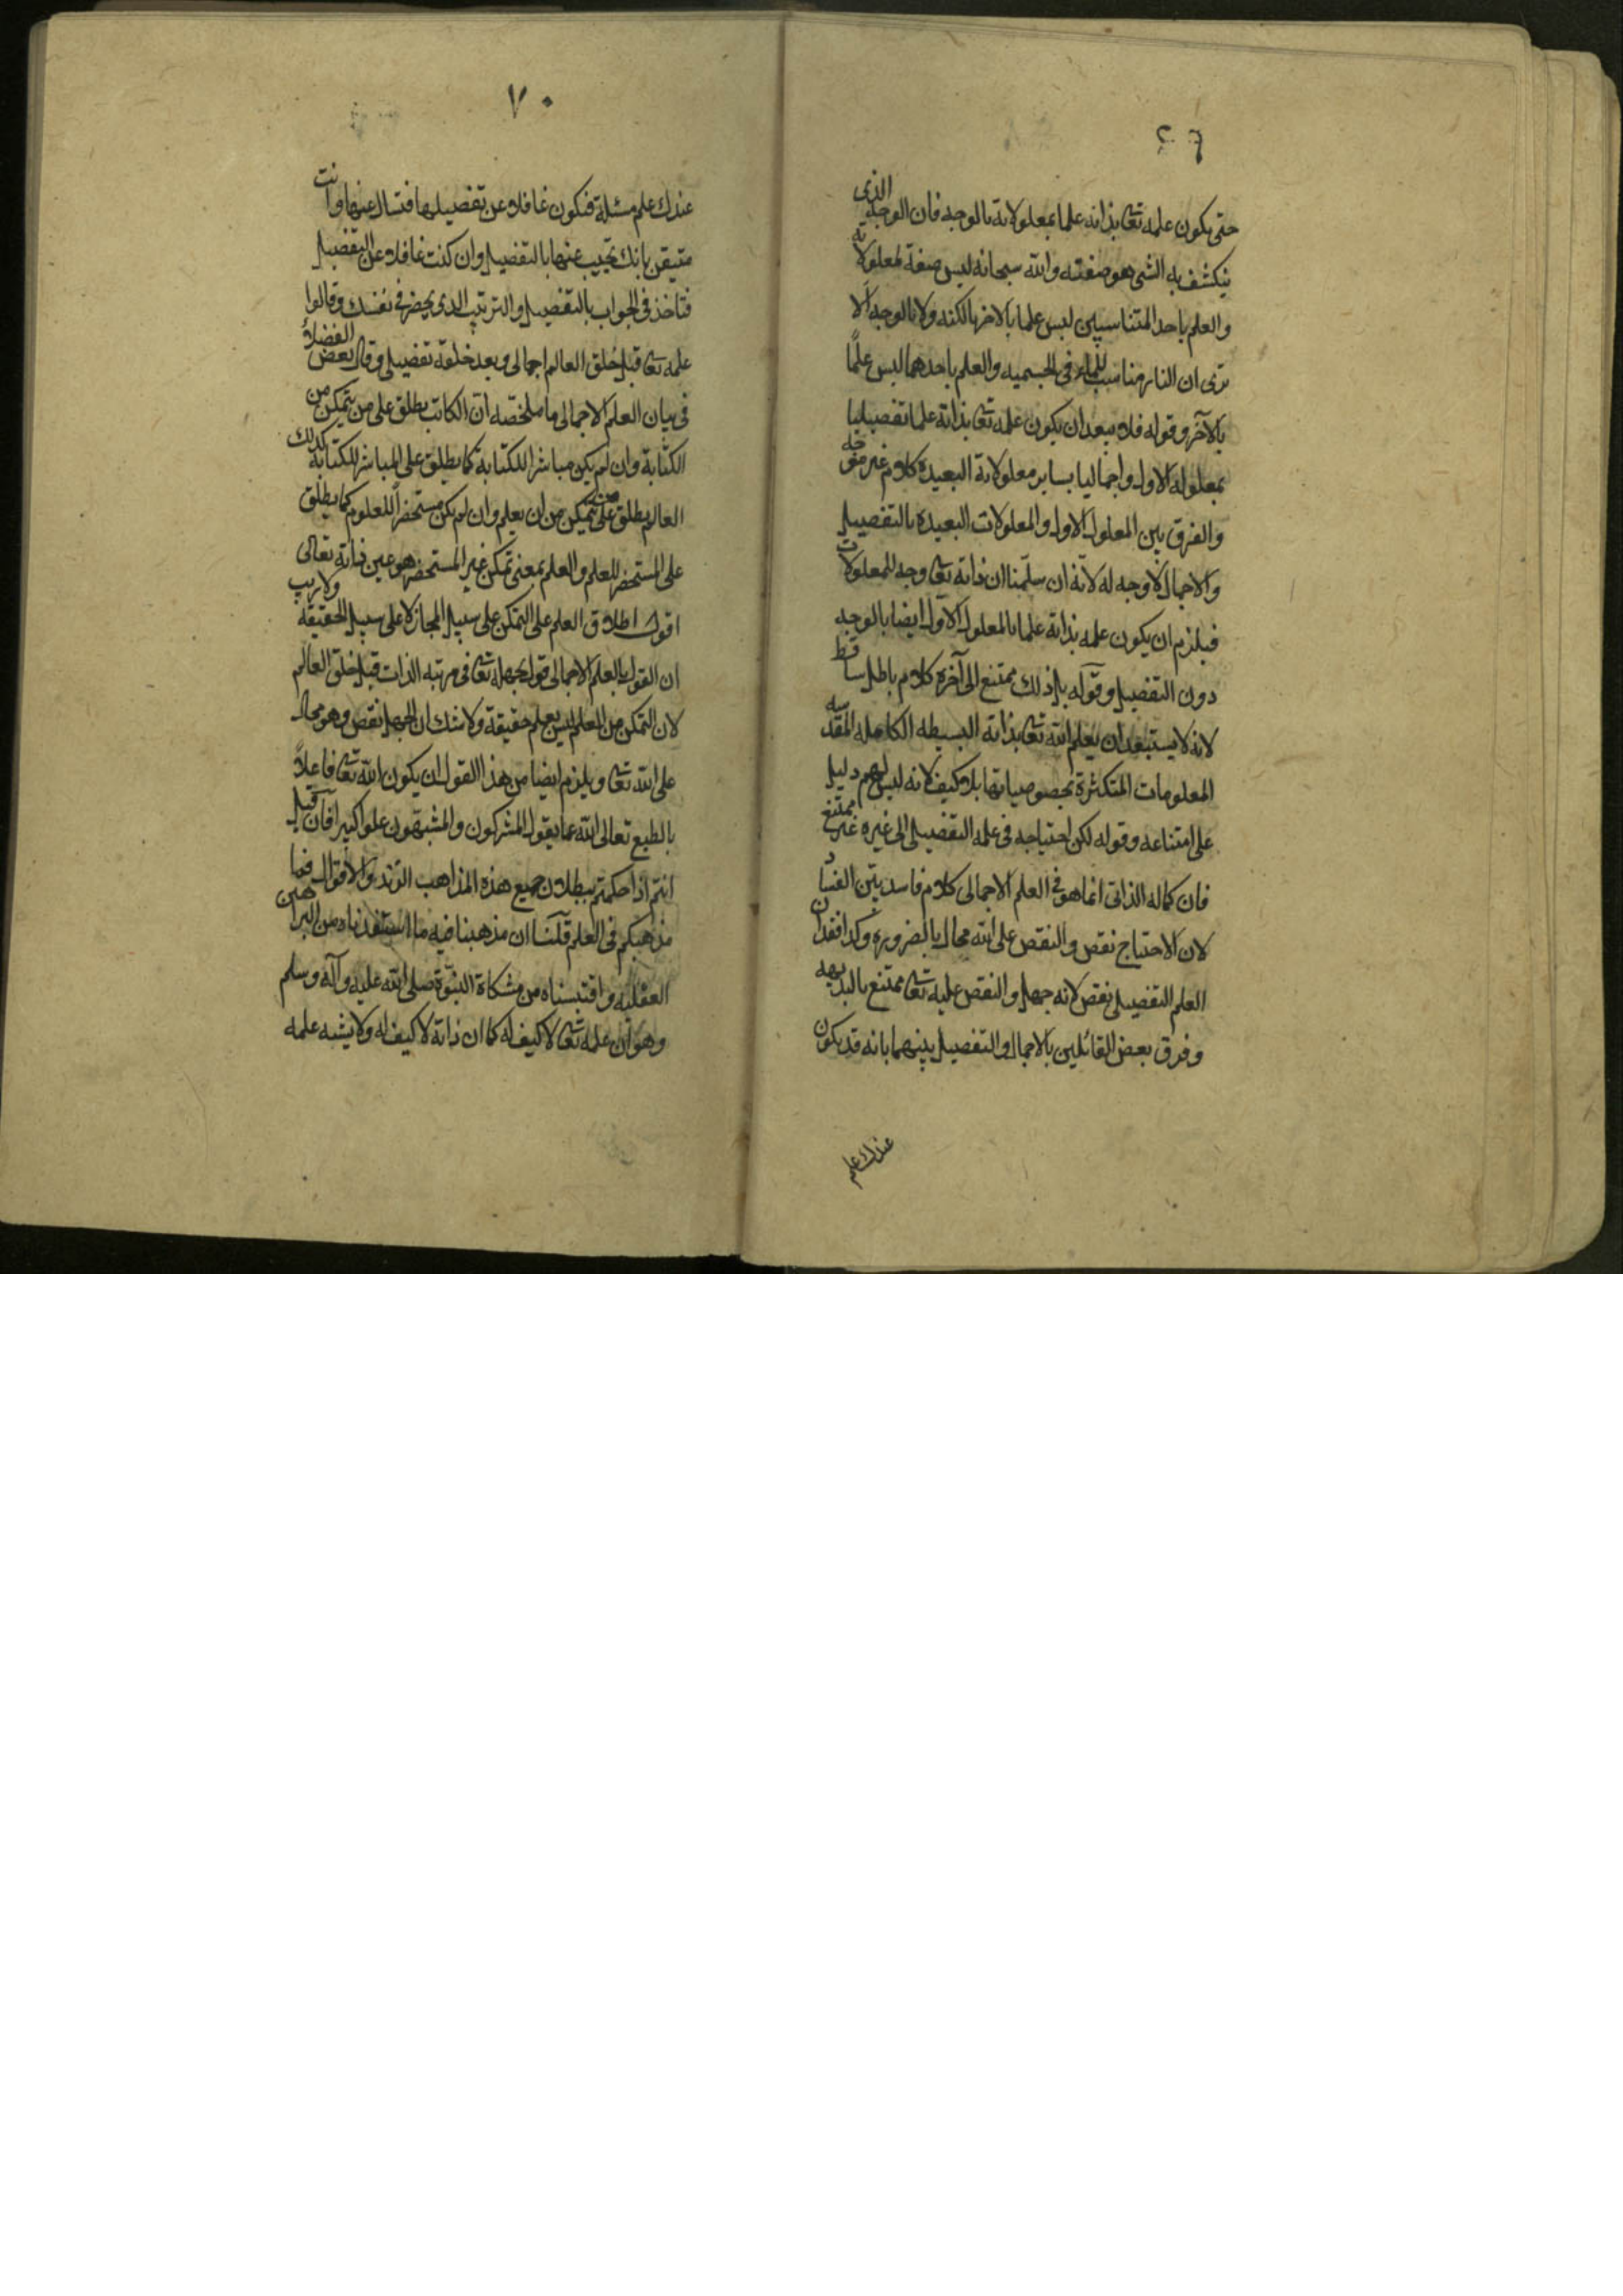 ٦٩
حتى يكون علمه تعا بذاته علما بمعلولاته بالوجه فان الوجه الذى
ينكشف به الشى هو صفته والله سبحانه ليس صفة لمعلولاته
والعلم باحد المتناسبين ليس علما بالاخر بالكنه ولا بالوجه الا
ترى ان النار مناسب للماء فى الجسميه والعلم باحدهما ليس علمًا
بالآخر وقوله فلا يبعد ان يكون علمه تعا بذاته علما تفصيليا
بمعلوله الاول واجماليا بساير معلولاته البعيدة كلام غير موجه
والفرق بين المعلول الاول والمعلولات البعيده بالتفصيل
والاجمال لا وجه له لانه ان سلّمنا ان ذاته تعا وجه للمعلولات
فيلزم ان يكون علمه بذاته علما بالمعلول الاول ايضا بالوجه
دون التفصيل وقوله بل ذلك ممتنع الى آخره كلام باطل ساقط
لانه لا يستبعد ان يعلم الله تعا بذاته البسيطه الكامله المقدسه
المعلومات المتكثرة بخصوصياتها بلا كيف لانه ليس لهم دليل
على امتناعه وقوله لكن احتياجه فى علمه التفصيلى الى غيره غير ممتنع
فان كماله الذاتى انما هو فى العلم الاجمالى كلام فاسد بيّن الفساد
لان الاحتياج نقص والنقص على الله محال بالضروره وكذا فقدان
العلم التفصيلى نقص لانه جهل والنقص عليه تعا ممتنع بالبديهه
وفرق بعض القائلين بالاجمال والتفصيل بينهما بانه قد يكون
عندك علم
٧٠
عندك علم مسئلة فتكون غافلا عن تفصيلها فتسال عنها وانت
متيقن بانك تجيب عنها بالتفصيل وان كنت غافلا عن التفصيل
فتاخذ فى الجواب بالتفصيل والترتيب الذى يحضر فى نفسك وقالوا
علمه تعا قبل خلق العالم اجمالى وبعد خلقه تفصيلى وقال بعض الفضلاء
فى بيان العلم الاجمالى ما ملخصه ان الكاتب يطلق على من يتمكن من
الكتابة وان لم يكن مباشرا للكتابة كما يطلق على المباشر للكتابة كذلك
العالم يطلق على من يتمكن من ان يعلم وان لم يكن مستحضراً للعلوم كما يطلق
على المستحضر للعلم والعلم بمعنى تمكن غير المستحضر هو عين ذاته تعالى
اقول اطلاق العلم على التمكن على سبيل المجاز لا على سبيل الحقيقة ولا ريب
ان القول بالعلم الاجمالى قول بجهله تعا فى مرتبه الذات قبل خلق العالم
لان التمكن من العلم ليس بعلم حقيقة ولا شك ان الجهل نقص وهو محال
على الله تعا ويلزم ايضا من هذا القول ان يكون الله تعا فاعلاً
بالطبع تعالى الله عما يقول المشركون والمشبهون علوا كبيرا فان قيل
انتم اذا حكمتم ببطلان جميع هذه المذاهب والاقوال فما
مذهبكم فى العلم قلنا ان مذهبنا فيه ما استفدناه من البراهين
العقليه واقتبسناه من مشكاة النبوّة صلى الله عليه وآله وسلم
وهو ان علمه تعا لا كيف له كما ان ذاته لا كيف له ولا يشبه علمه